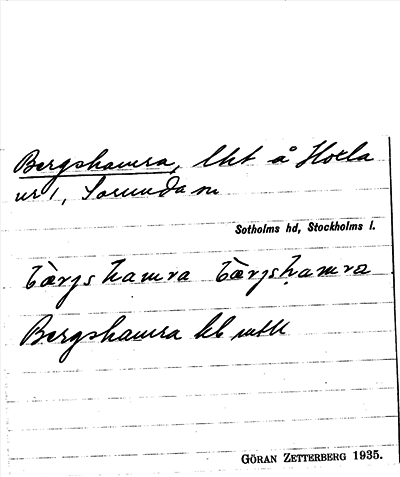 Bergshamra, lht å Horla
nr 1, Sorunda sn
Sotholms hd, Stockholms l.
bærjs hamra bærjsḥamra
Bergshamra lht
GÖRAN ZETTERBERG 1935.